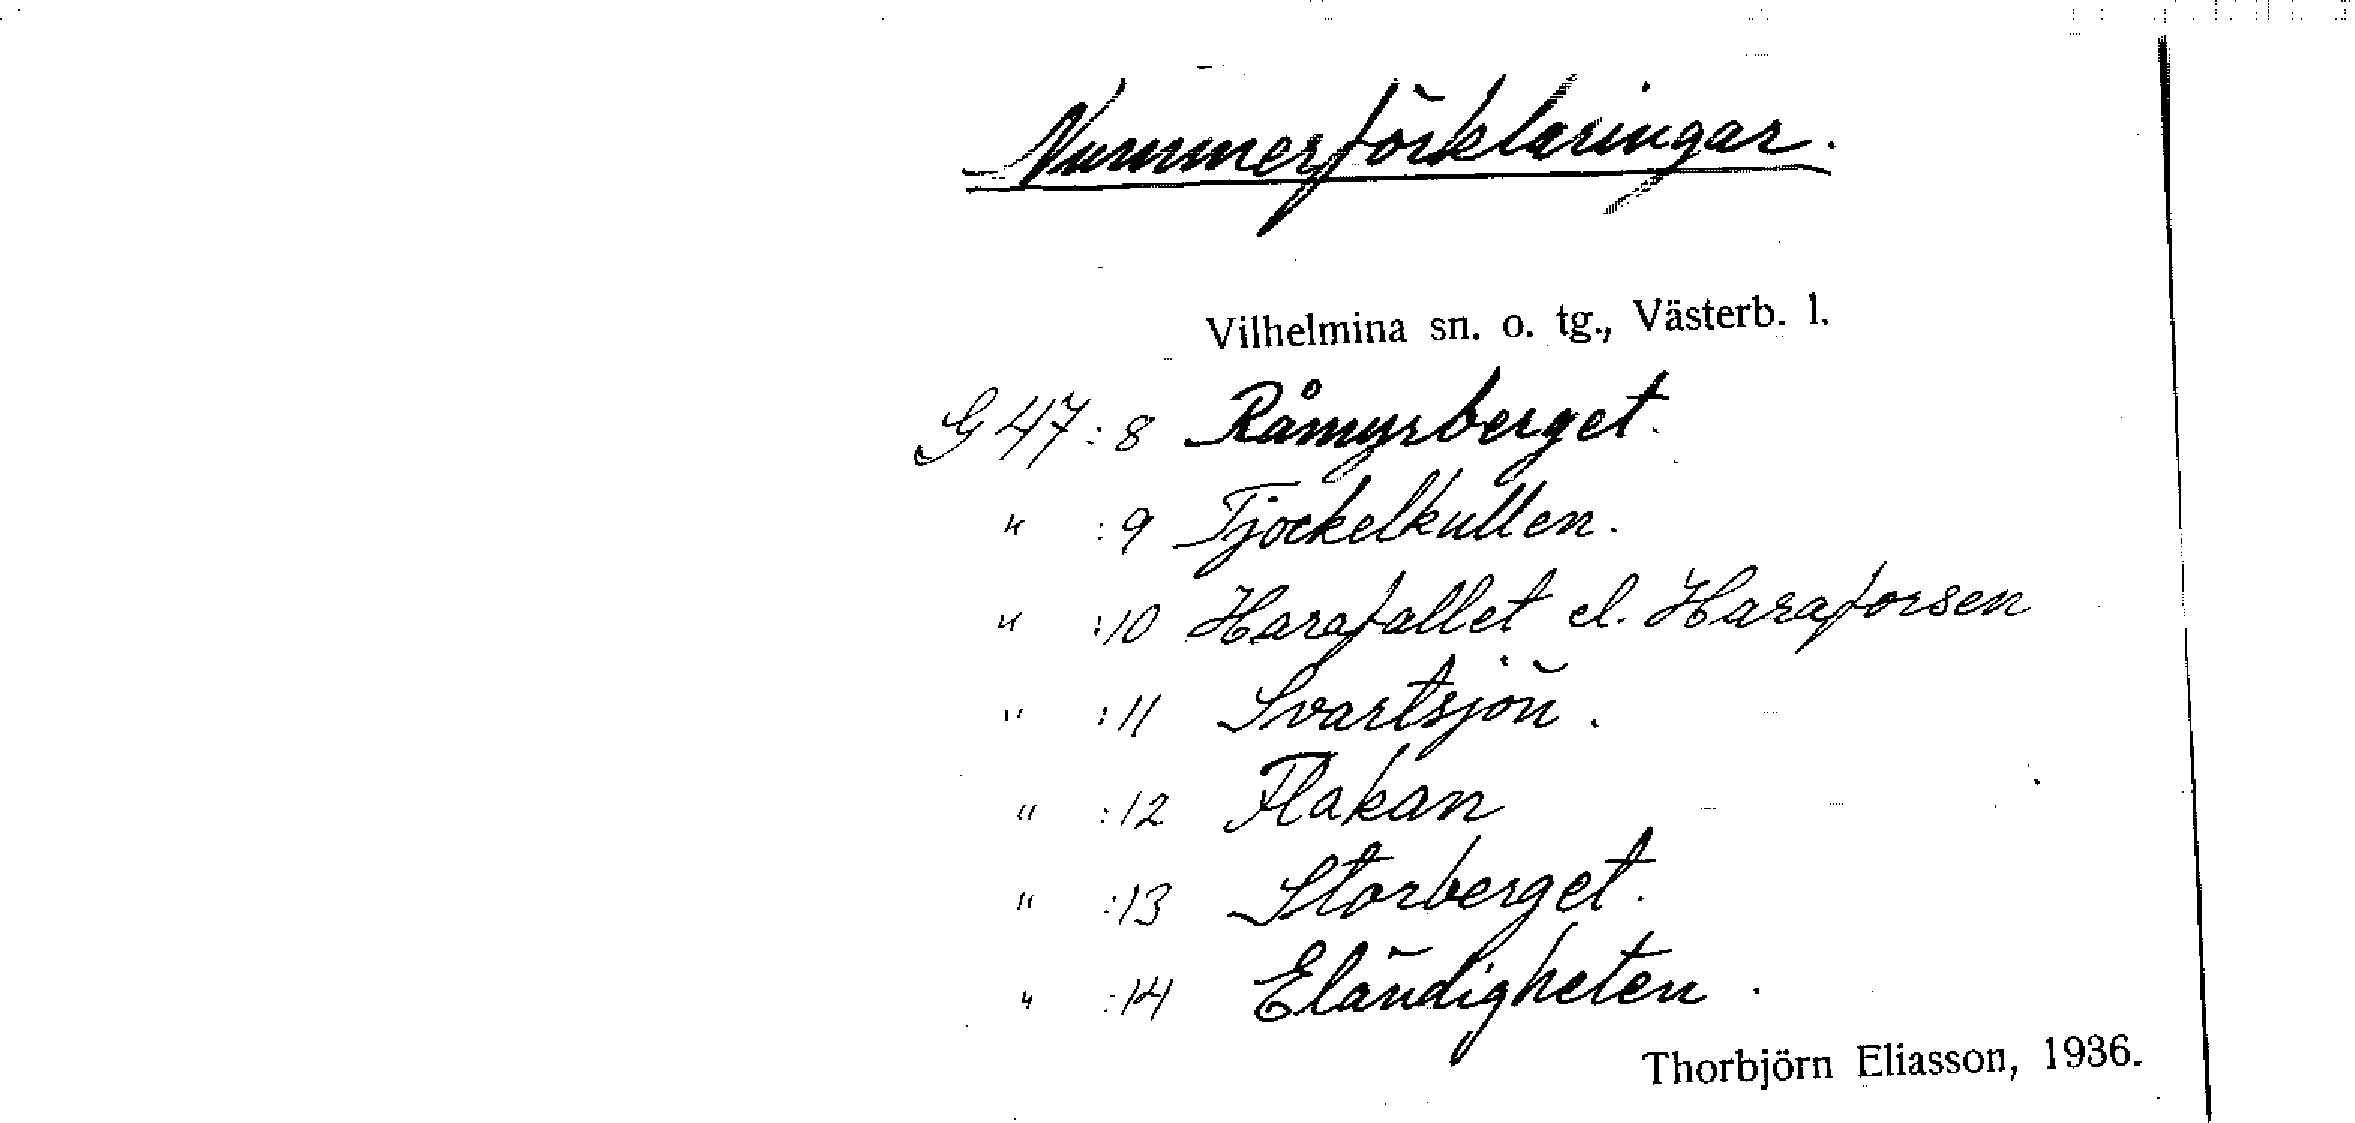 Nummerförklaringar.
Vilhelmina sn. o. tg., Västerb. l.
G 47:8 Råmyrberget.
" :9 Tjockelkullen.
" :10 Harafallet el. Haraforsen
" :11 Svartsjön.
" :12 Flakan
" :13 Storberget.
" :14 Eländigheten.
Thorbjörn Eliasson, 1936.